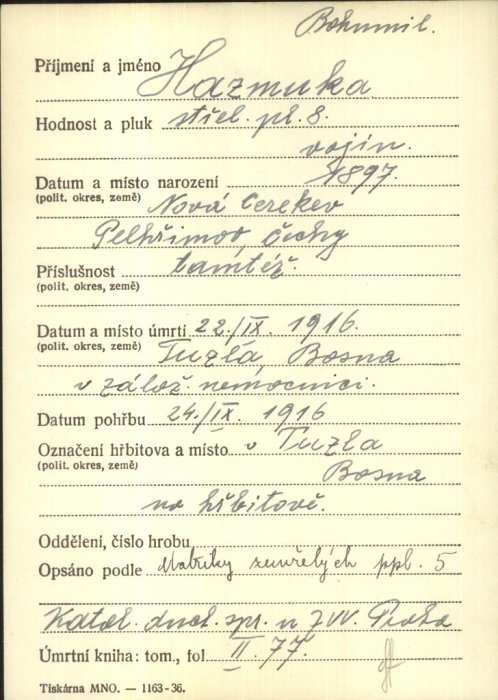 Bohumil.
Příjmení a jméno Hazmuka
Hodnost a pluk střel. pl. 8.
vojín.
Datum a místo narození 1897.
(polit. okres, země) Nová Cerekev
Pelhřimov, Čechy
Příslušnost tamtéž.
(polit. okres, země)
Datum a místo úmrtí 22./IX. 1916.
(polit. okres, země) Tuzla, Bosna
v zálož. nemocnici.
Datum pohřbu 24./IX. 1916
Označení hřbitova a místo v Tuzla
(polit. okres, země) Bosna
na hřbitově.
Oddělení, číslo hrobu
Opsáno podle Matriky zemřelých ppl. 5
Katol. duch. spr. u ZVV. Praha
Úmrtní kniha: tom., fol. II. 77.
Tiskárna MNO. — 1163-36.